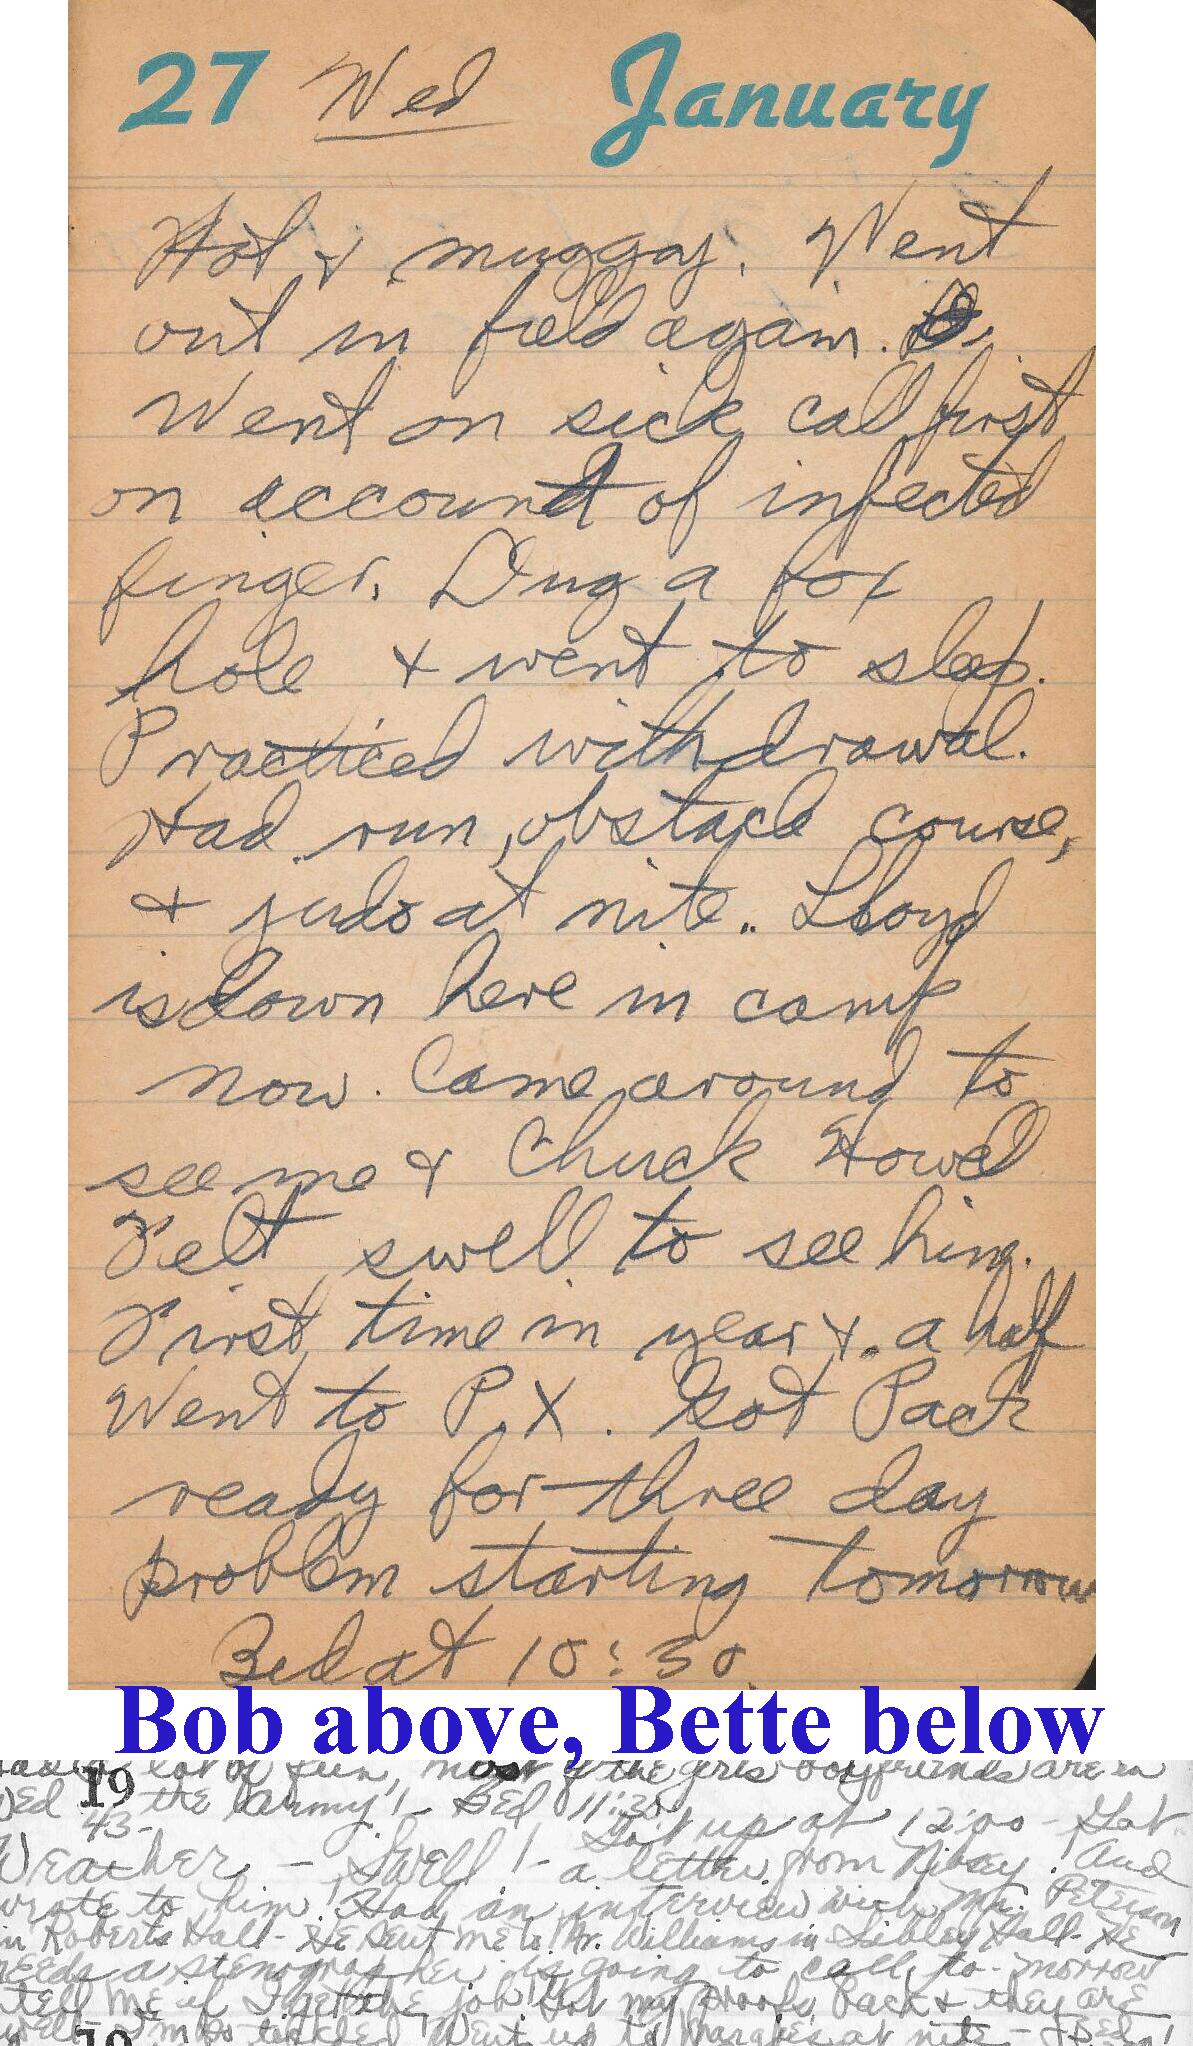 27 Wed January
Hot & muggy. Went
out in field again.
Went on sick call first
on account of infected
finger. Dug a fox
hole & went to sleep.
Practiced withdrawal.
Had run, obstacle course,
& judo at nite. Lloyd
is down here in camp
now. Came around to
see me & Chuck Howell
Felt swell to see him.
First time in year & a half
Went to P.X. Got Pack
ready for three day
problem starting tomorrow
Bed at 10:30.
Bob above, Bette below
19 lot of fun, most of the girls boyfriends are in
the Army! - Bed 11:30
43- Got up at 12:00 - Got
Weather - Swell! - a letter from Nibsey! And
wrote to him! Had an interview with Mr. Peterson
in Roberts Hall - He sent me to Mr. Williams in Sibley Hall - He
needs a stenographer is going to call to-morrow
tell me if I get the job! Got my proofs back & they are
swell - I'm so tickled Went up to Marge's at nite - Bed
19